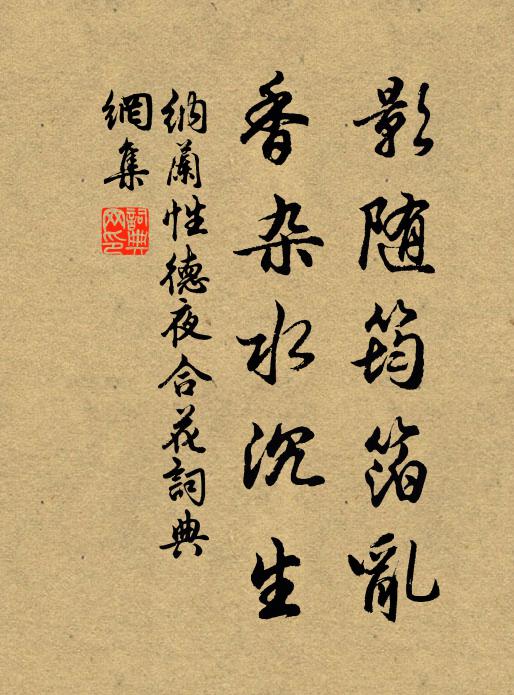 影随筠箔亂
香杂水沉生
納蘭性德夜合花詞典
網集
詞典
网印